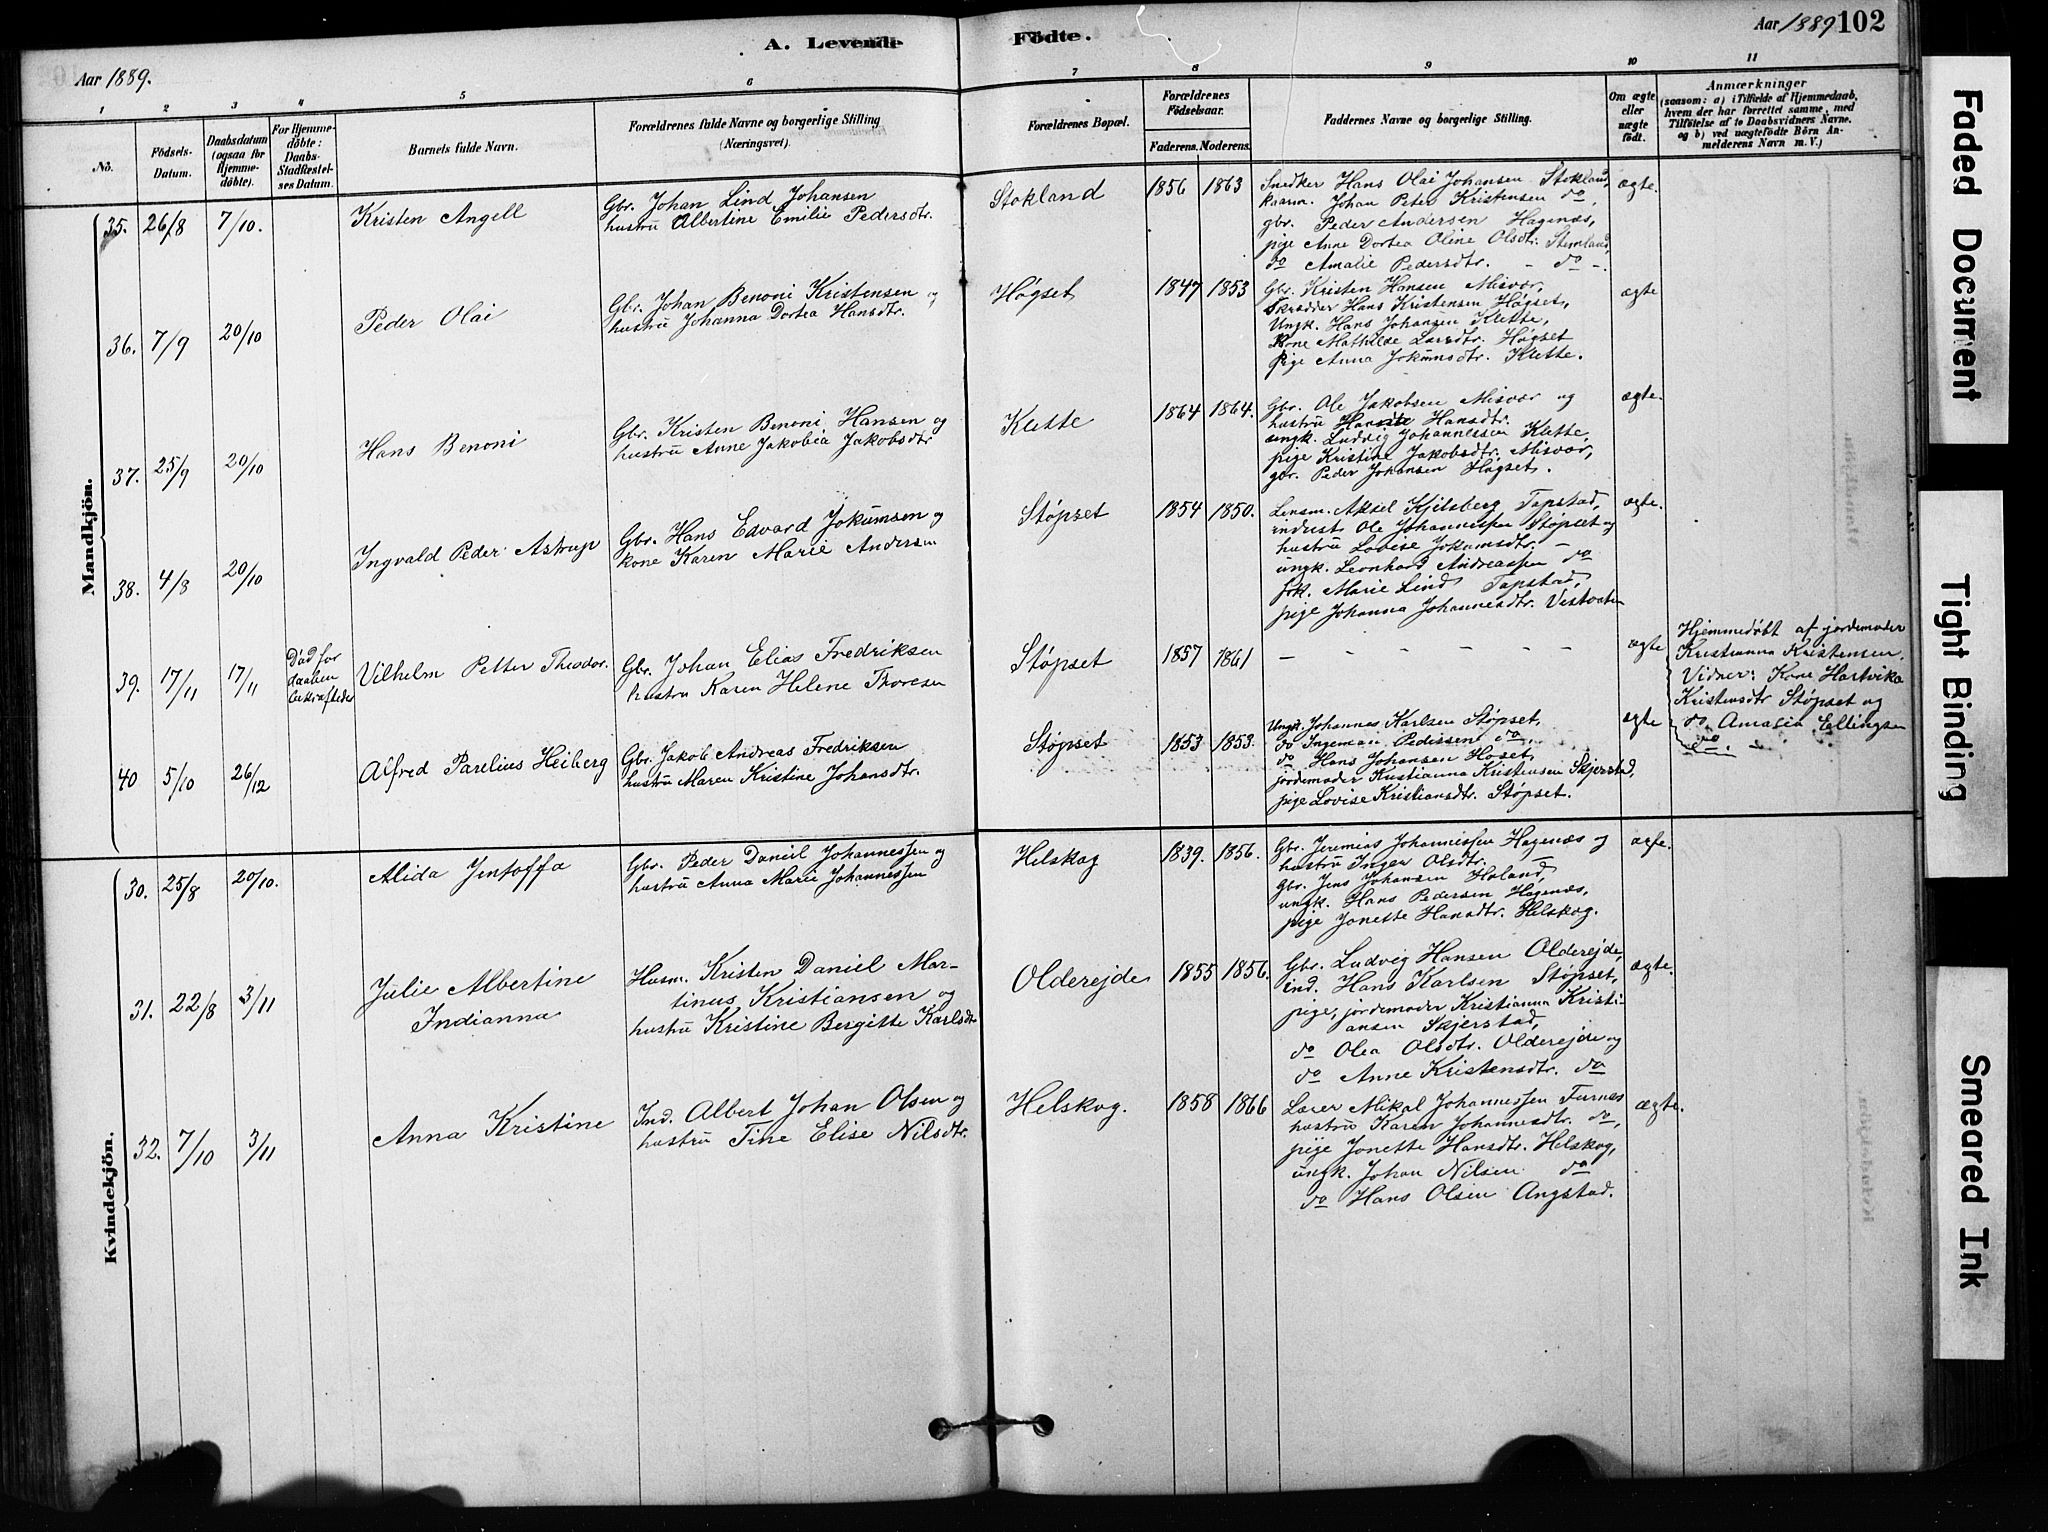 Aar 1889.
A. Levende
Födte.
Aar 1889
102
1
2
3
4
5
6
7
8
9
10
11
No.
Födsels-
Datum.
Daabsdatum
(ogsaa for
Hjemme-
döbte).
For Hjemme-
döbte:
Daabs-
Stadfæstel-
ses Datum.
Barnets fulde Navn.
Forældrenes fulde Navne og borgerlige Stilling
(Næringsvei).
Forældrenes Bopæl.
Forældrenes
Födselsaar.
Faderens.
Moderens.
Faddernes Navne og borgerlige Stilling.
Om ægte
eller
uægte
födt.
Anmærkninger
(saasom: a) i Tilfælde af Hjemmedaab,
hvem der har forrettet samme, med
Tilföielse af to Daabsvidners Navne,
og b) ved uægtefödte Börn An-
melderens Navn m. V.)
Mandkjön.
35. 26/8 7/10.
Kristen Angell
Gbr. Johan Lind Johansen
hustru Albertine Emilie Pedersdtr.
Stokland
1856 1863
Snedker Hans Olai Johansen Stokland,
kaarm. Johan Peter Kristensen do,
gbr. Peder Andersen Hagenæs,
pige Anne Dortea Oline Olsdtr.
do Amalie Pedersdtr. - do -.
ægte.
36. 7/9 20/10
Peder Olai
Gbr. Johan Benoni Kristensen og
hustru Johanna Dortea Hansdtr.
Høgset
1847 1853
Gbr. Kristen Hansen Misvær,
Skrædder Hans Kristensen Høgset,
Ungk. Hans Johansen Klette,
Kone Mathilde Larsdtr. Høgset
pige Anna Jokumsdtr. Klette.
ægte
37. 25/9 20/10
Hans Benoni
Gbr. Kristen Benoni Hansen og
hustru Anne Jakobia Jakobsdtr
Klette
1864 1864.
Gbr. Ole Jakobsen Misvær og
hustru Hansdtr.
ungk. Ludvig Johannessen Klette,
pige Kristine Jakobsdtr. Misvær,
gbr. Peder Johansen Høgset.
ægte.
38. 4/8 20/10
Ingvald Peder Astrup
Gbr. Hans Edvard Jokumsen og
kone Karen Marie Andersen
Støpset
1854 1850.
Lensm. Aksel Kjelsberg Tapstad,
inderst Ole Johannessen Støpset og
hustru Lovise Jokumsdtr. -
ungk. Leonhard Andreassen do
frk. Marie Lind Tapstad,
pige Johanna Johannesdtr. Vestvatn
ægte.
39. 17/11 17/11
Død før
daaben
bekræftedes
Vilhelm Petter Theodor.
Gbr. Johan Elias Fredriksen
hustru Karen Helene Thoresen
Støpset
1857 1861
- - - - - -
ægte
Hjemmedøbt af jordemoder
Kristianna Kristensen.
Vidner: Kone Hartvika
Kristensdtr Støpset og
do Amalia Ellingsen
do. -
40 5/10 26/12
Alfred Parelius Heiberg
Gbr. Jakob Andreas Fredriksen
hustru Maren Kristine Johansdtr.
Støpset
1853 1853.
Ungk. Johannes Karlsen Støpset,
do Ingemar Pedersen do,
do Hans Johansen Hoset,
jordemoder Kristianna Kristensen Skjerstad,
pige Lovise Kristiansdtr. Støpset.
ægte
Kvindekjön.
30. 25/8 20/10.
Alida Jentoffa
Gbr. Peder Daniel Johannessen og
hustru Anna Marie Johannessen
Helskog
1839. 1856.
Gbr. Jeremias Johannessen Hagenæs og
hustru Inger Olsdtr. -
Gbr. Jens Johansen Høland,
ungk. Hans Pedersen Hagenæs,
pige Jonette Hansdtr. Helskog.
ægte.
31. 22/8 3/11
Julie Albertine
Indianna
Husm. Kristen Daniel Mar-
tinus Kristiansen og
hustru Kristine Bergitte Karlsdtr
Olderejde
1855 1856.
Gbr. Ludvig Hansen Olderejde,
ind. Hans Karlsen Støpset,
pige, jordemoder Kristianna Kristi-
ansen Skjerstad,
do Olea Olsdtr. Olderejde og
do Anne Kristensdtr. do
ægte.
32. 7/10 3/11
Anna Kristine
Ind. Albert Johan Olsen og
hustru Tine Elise Nilsdtr.
Helskog.
1858 1866
Lærer Mikal Johannessen Furnes
hustru Karen Johannesdtr. do,
pige Jonette Hansdtr. Helskog,
ungk. Johan Nilsen do
do Hans Olsen Angstad.
ægte.
Faded Document
Tight Binding
Smeared Ink